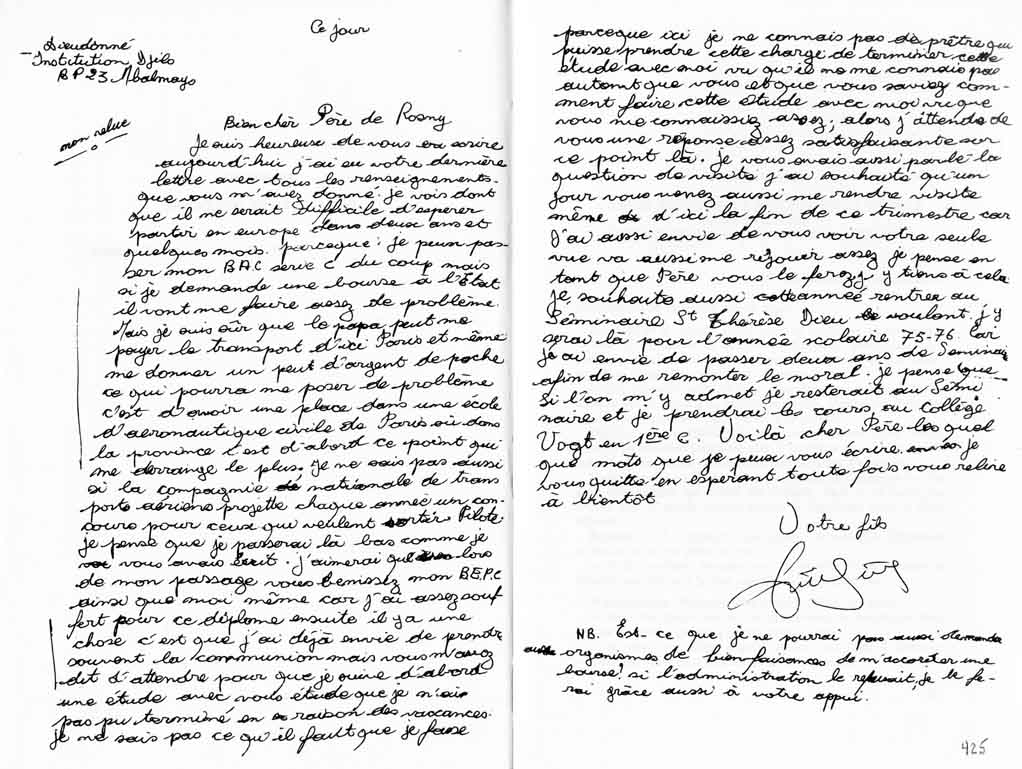 Ce jour
Dieudonné
Institution Djilo
B P 23 Mbalmayo
Bien cher Père de Rosny
non relue
Je suis heureuse de vous écrire
aujourd'hui j'ai eu votre dernière
lettre avec tous les renseignements.
que vous m'avez donné. je vois dont
que il me serait difficile d'esperer
partir en europe dans deux ans et
quelques mois. parceque : je peux pas-
ser mon B.A.C serie C du coup mais
si je demande une bourse à l'Etat
il vont me faire assez de problème.
Mais je suis sûr que le papa peut me
payer le transport d'ici Paris et même
me donner un peut d'argent de poche
ce qui pourra me poser de problème
c'est d'avoir une place dans une école
d'aeronautique civile de Paris ou dans
la province c'est d'abord ce point qui
me derrange le plus. Je ne sais pas aussi
si la compagnie nationale de trans
ports aériens projette chaque année un con-
cours pour ceux qui veulent sortir Pilote.
je pense que je passerai là bas comme je
vous avais écrit. j'aimerai que lors
de mon passage vous benissez mon B.E.P.C
ainsi que moi même car j'ai assez souf
fert pour ce diplome ensuite il y a une
chose c'est que j'ai déjà envie de prendre
souvent la communion mais vous m'avez
dit d'attendre pour que je suive d'abord
une étude avec vous étude que je n'ais
pas pu terminé en raison des vaxcances.
je ne sais pas ce qu'il fault que je fasse
parceque ici je ne connais pas de prêtre qui
puisse prendre cette charge de terminer cette
étude avec moi vu qu'il ne me connais pas
autant que vous et que vous saviez com-
ment faire cette étude avec moi vu que
vous me connaissiez assez; alors j'attends de
vous une réponse assez satisfaisante sur
ce point là. je vous avais aussi parlé la
question de visite j'ai souhaité qu'un
jour vous venez aussi me rendre visite
même d'ici la fin de ce trimestre car
j'ai aussi envie de vous voir votre seule
vue va aussi me rejouer assez je pense en
tant que Père vous le ferez j'y tiens à cela
Je souhaite aussi cette année rentrer au
Séminaire St Thérèse Dieu voulant. j'y
serai là pour l'année scolaire 75-76. Car
j'ai envie de passer deux ans de Seminai
afin de me remonter le moral. je pense que
Si l'on m'y admet je resterait au Sémi
naire et je prendrai les cours au collège
Vogt en 1ère C. Voilà cher Père les quel
que mots que je peux vous écrire. je
vous quitte en esperant toute fois vous relire
à bientôt
Votre fils
NB. Est-ce que je ne pourrai pas aussi demander
organismes de bien faisances de m'accorder une
bourse? si l'administration le refusait, je le fe-
rai grâce aussi à votre appui.
425